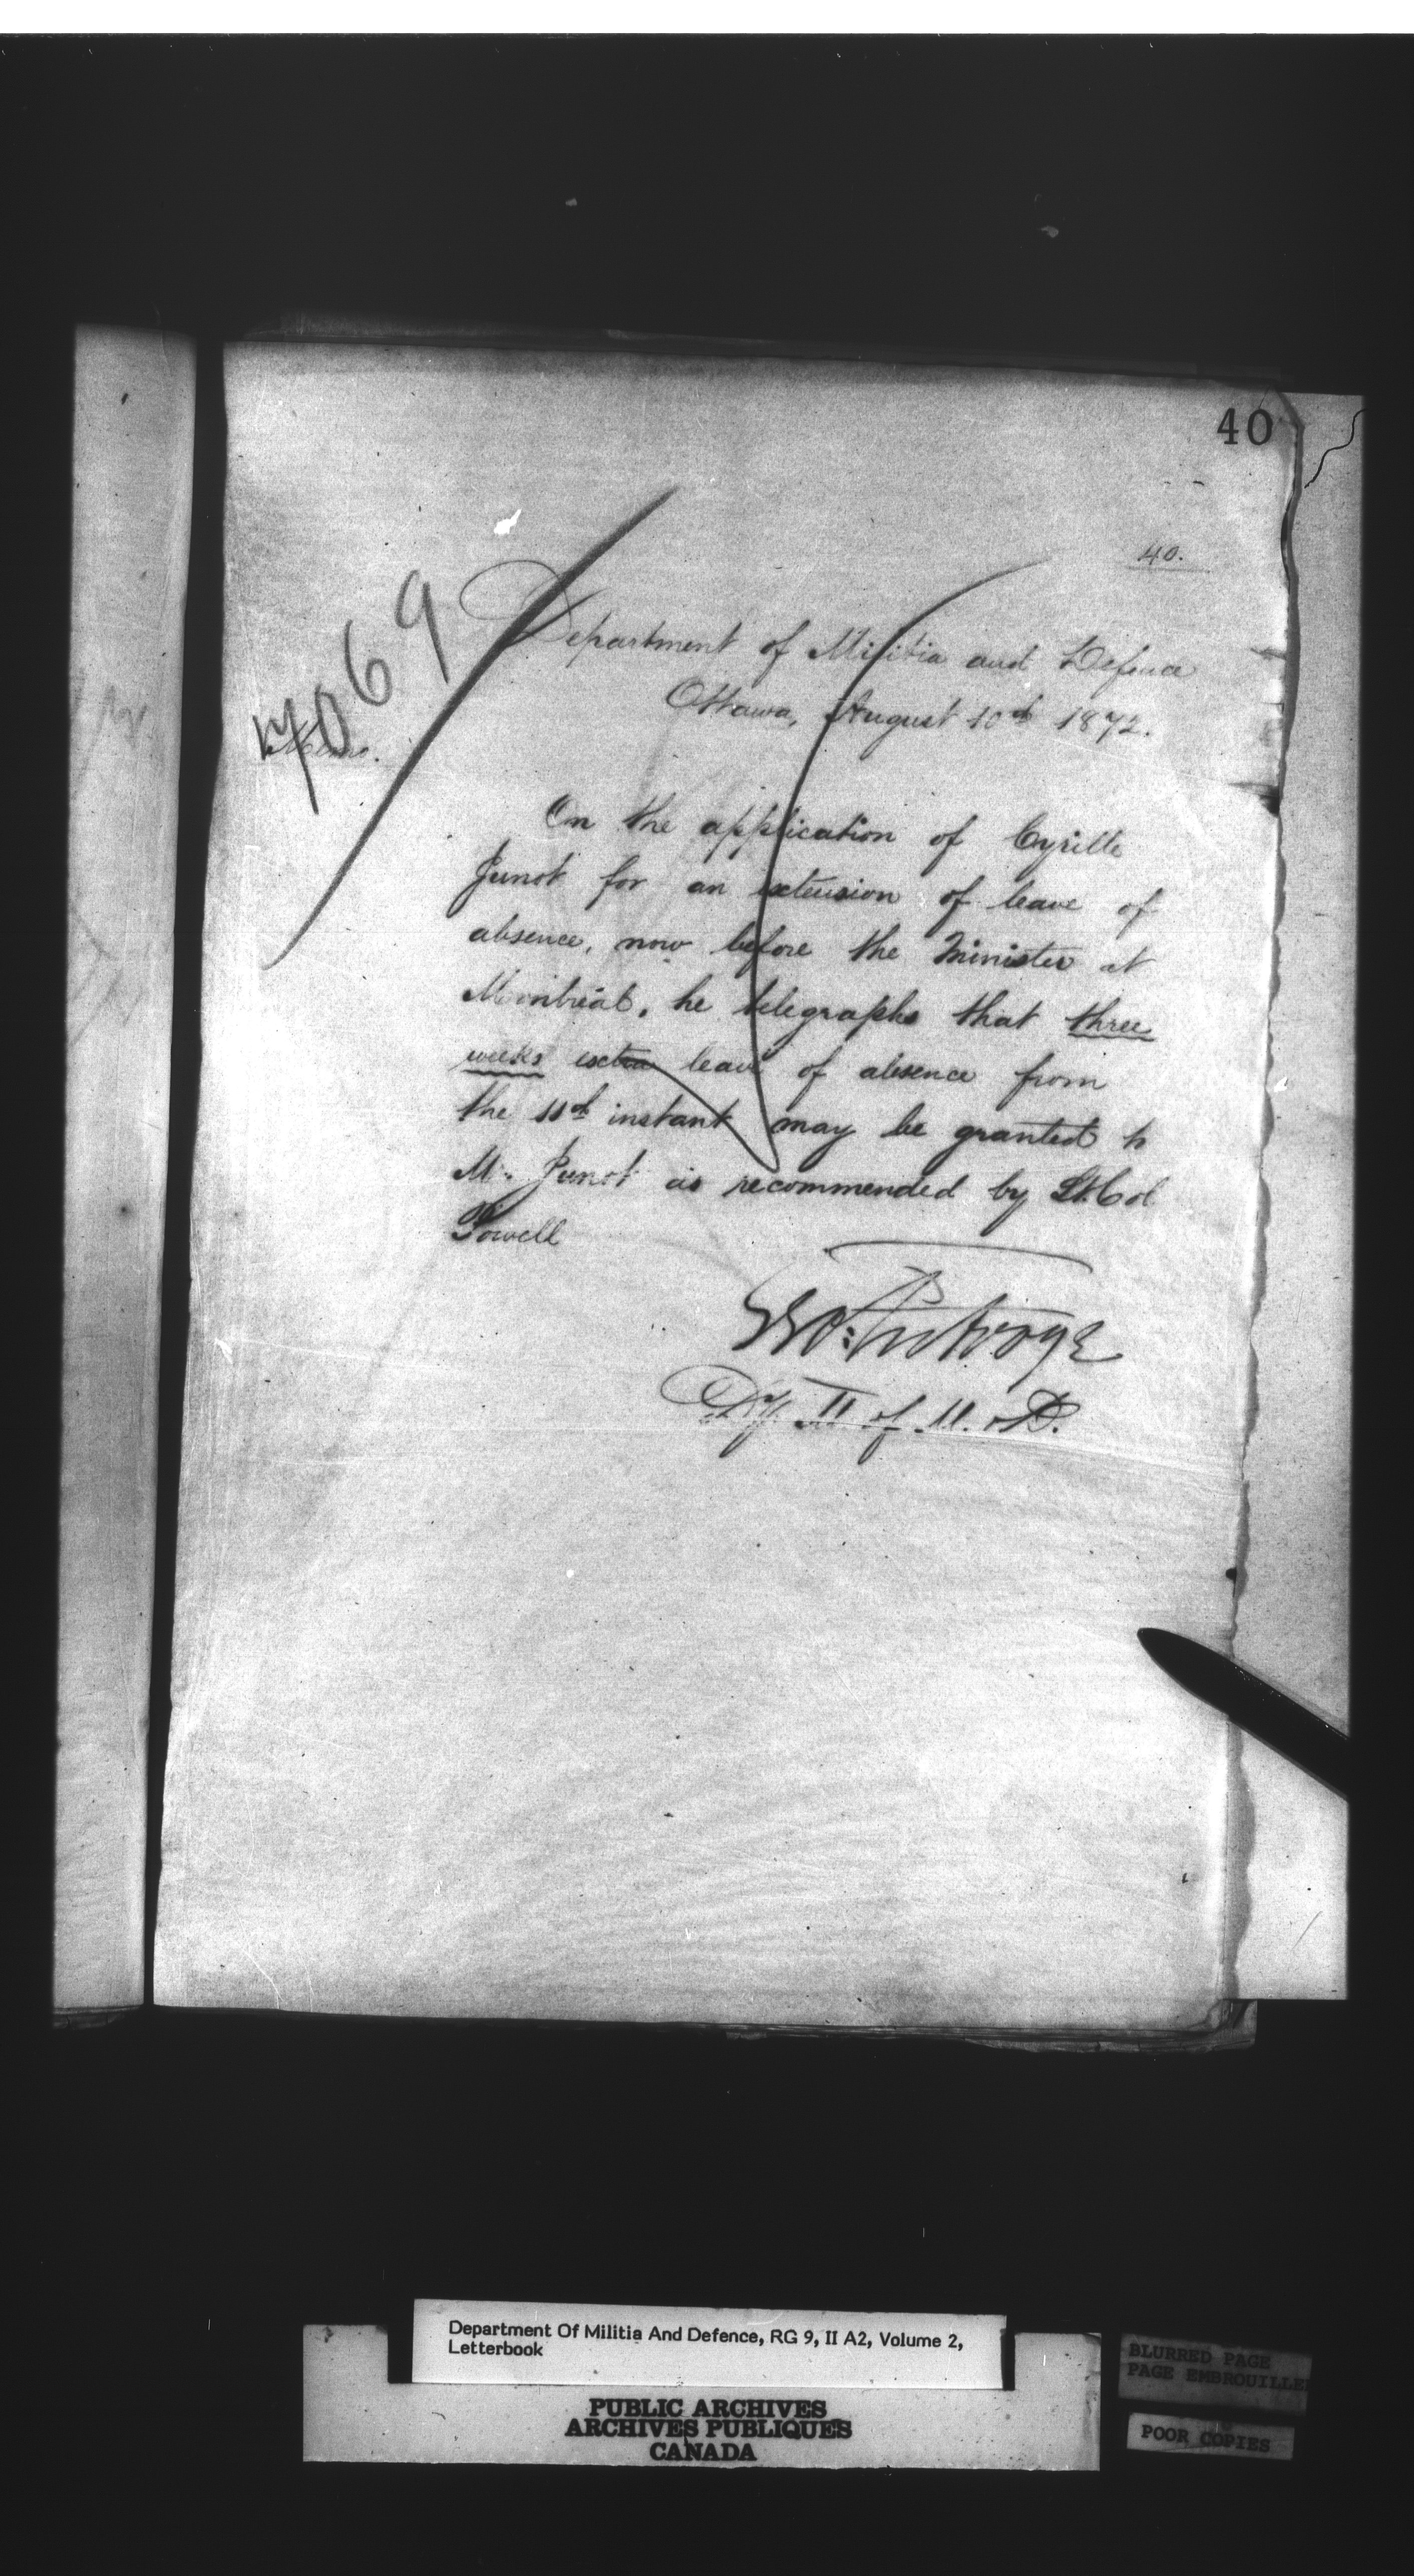 40
40.
7069
Department of Militia and Defence
Ottawa, August 10th 1872.
Memo.
On the application of Cyrille
Junot for an extension of leave of
absence, now before the Minister at
Montreal, he telegraphs that three
weeks extra leave of absence from
the 11th instant may be granted to
Mr. Junot as recommended by Lt. Col
Powell
Geo: Futvoye
Dy. M of M. & D.
Department Of Militia And Defence, RG 9, II A2, Volume 2,
Letterbook
PUBLIC ARCHIVES
ARCHIVES PUBLIQUES
CANADA
BLURRED PAGE
PAGE EMBROUILLEE
POOR COPIES